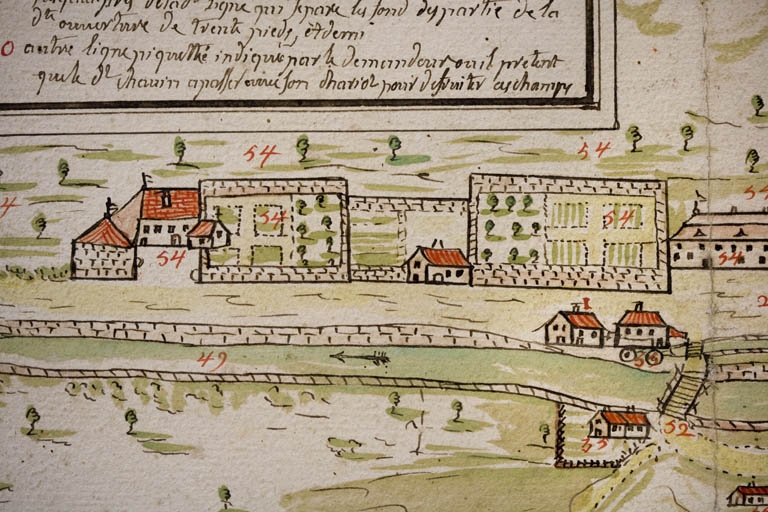 ligne qui separe les fond des partie de la
dte ouverture de trente pieds, et demi
O autre ligne piquetté indiqué par le demandeur ou il pretent
que le dt chavin a passer avec son chariot pour defruiter ses champs
54 54
54
4 54 54
54 54
2
1
49 55
52
55